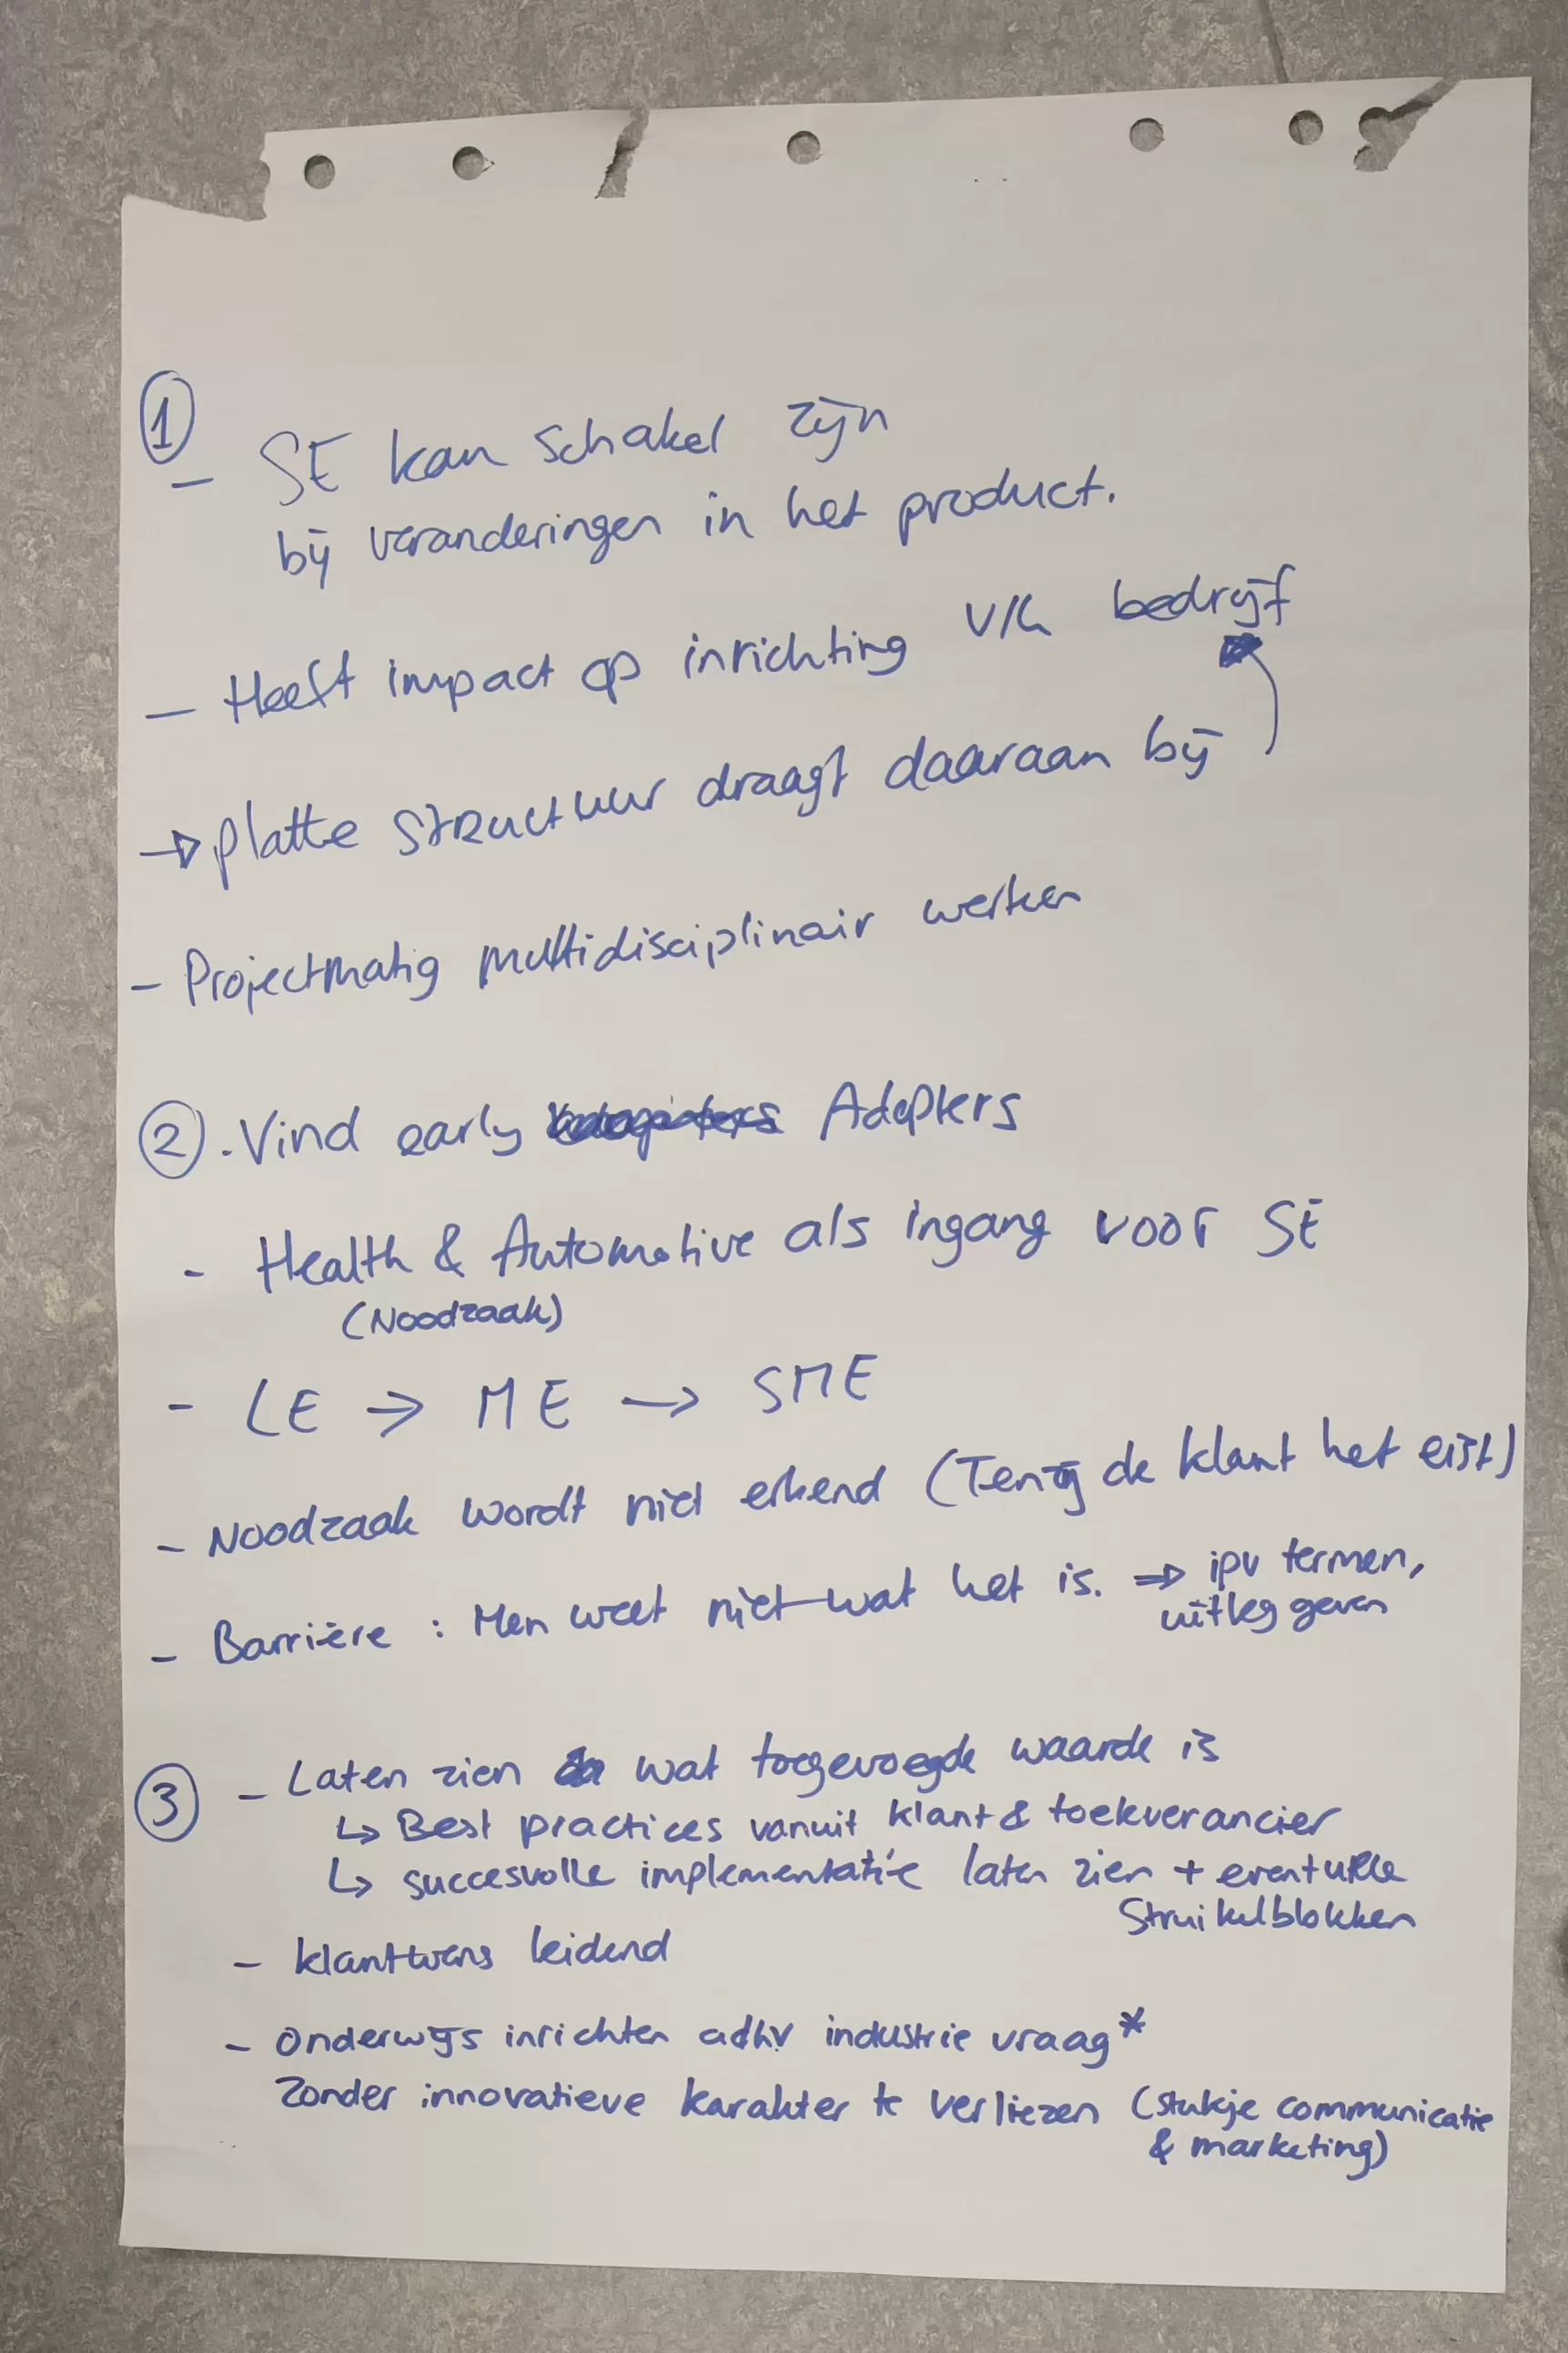 ①
- SE kan schakel zijn
bij veranderingen in het product.
- Heeft impact op inrichting v/h bedrijf
→ platte structuur draagt daaraan bij
- Projectmatig multidisciplinair werken
② . Vind early Adopters
- Health & Automotive als ingang voor SE
(Noodzaak)
- LE → ME → SME
- Noodzaak wordt niet erkend (Tenzij de klant het eist)
- Barrière : Men weet niet wat het is. ⇒ ipv termen,
uitleg geven
③ - Laten zien wat toegevoegde waarde is
↳ Best practices vanuit klant & toeleverancier
↳ succesvolle implementatie laten zien + eventuele
Struikelblokken
- klantwens leidend
- Onderwijs inrichten adhv industrie vraag*
Zonder innovatieve karakter te verliezen (stukje communicatie
& marketing)